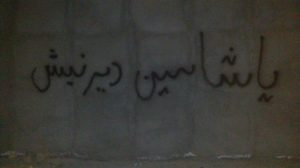 یاشاسین دیرنیش